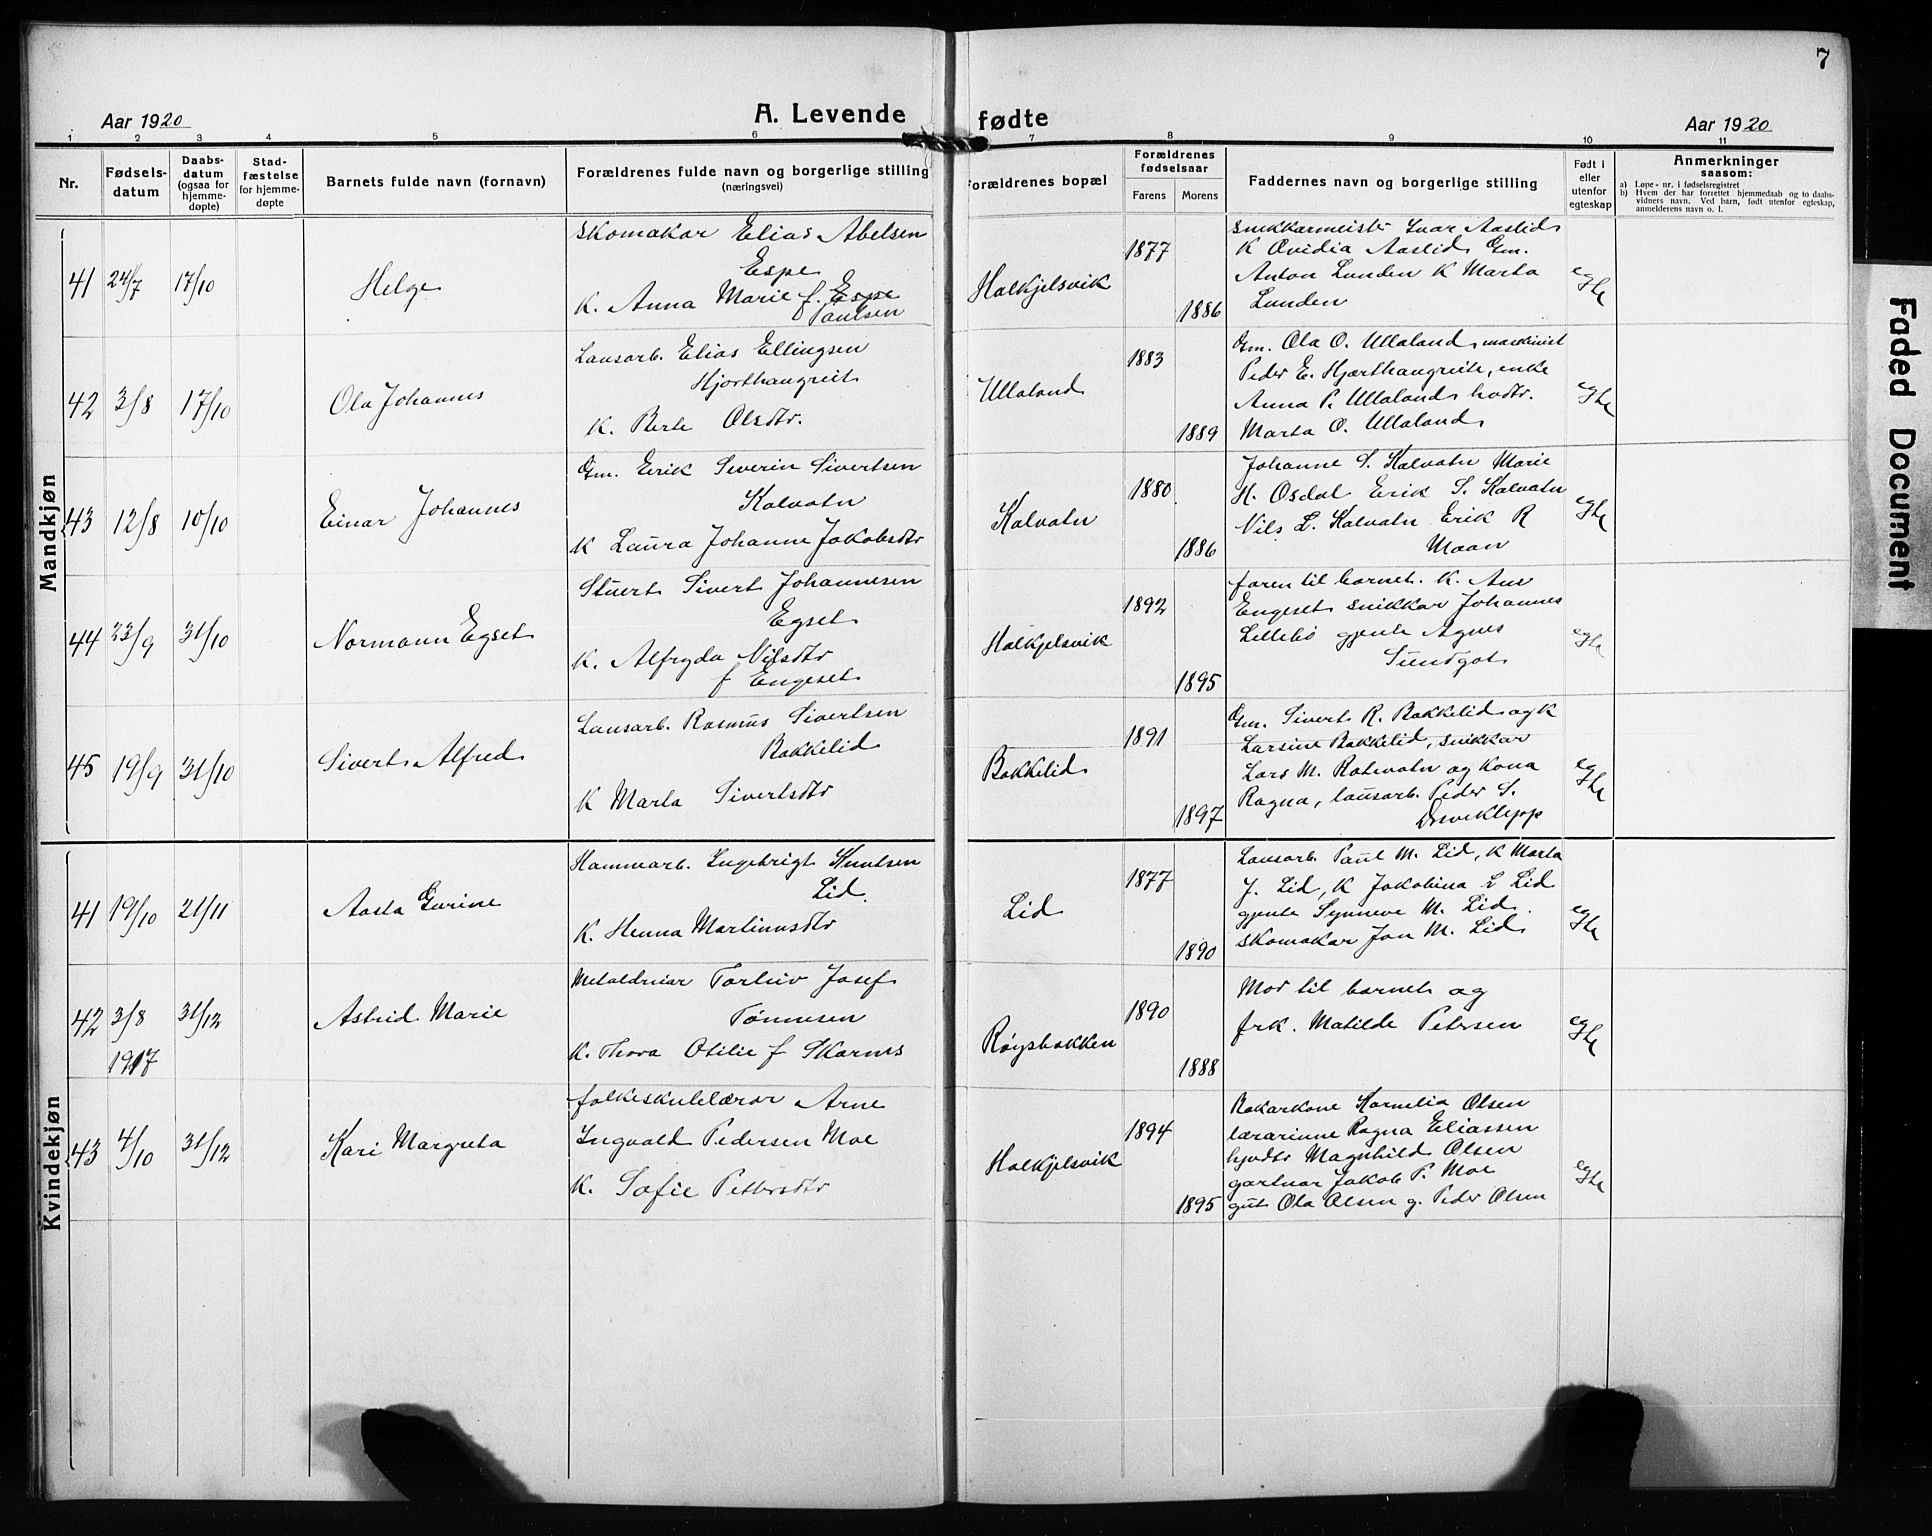 7
Aar 1920
A. Levende fødte
Aar 1920
1 2 3 4 5 6 7 8 9 10 11
Nr.
Fødsels-
datum
Daabs-
datum
(ogsaa for
hjemme-
døpte)
Stad-
fæstelse
for hjemme-
døpte
Barnets fulde navn (fornavn)
Forældrenes fulde navn og borgerlige stilling
(næringsvei)
Forældrenes bopæl
Forældrenes
fødselsaar
Farens Morens
Faddernes navn og borgerlige stilling
Født i
eller
utenfor
egteskap
Anmerkninger
saasom:
a) Løpe-nr. i fødselsregistret
b) Hvem der har forrettet hjemmedaab og to daabs-
vidners navn. Ved barn, født utenfor egteskap,
anmelderens navn o. l.
Mandkjøn
41 24/7 17/10
Helge
Skomakar Elias Abelsen
Espe
K. Anna Marie f. Espe
Paulsen
Halkjelsvik
1877
1886
snikkarmeister Ivar Aaslid
K Ovidia Aaslid Gm.
Anton Lunden K Marta
Lunden
egte
42 3/8 17/10
Ola Johannes
Lausarb. Elias Ellingsen
Hjorthaugreit
K. Berte Olsdtr.
Ullaland
1883
1889
Gm. Ola O. Ullaland, maskinist
Peder E. Hjorthaugreite, enke
Anna P. Ullaland, hodtr.
Marta O. Ullaland
egte
43 12/8 10/10
Einar Johannes
Gm. Eirik Severin Sivertsen
Kalvatn
K Laura Johanne Jakobsdtr
Kalvatn
1880
1886
Johanne S. Kalvatn Marie
H. Osdal Erik S. Kalvatn
Nils L. Kalvatn Erik R
Maan
egte
44 23/9 31/10
Normann Egset
Stuert Sivert Johannesen
Egset
K. Alfryda Nilsdtr
f Engeset
Halkjelsvik
1892
1895
faren til barnet. K. Ane
Engeset snikkar Johannes
Lillebö gjente Agnes
Sundgot
egte
45 19/9 31/10
Sivert Alfred
Lausarb. Rasmus Sivertsen
Bakkelid
K Marta Sivertsdtr
Bakkelid
1891
1897
Gm. Sivert R. Bakkelid og K
Larsine Bakkelid, snikkar
Lars M. Rotevatn og Kona
Ragna, lausarb. Peder S.
Dreveklepp
egte
Kvindekjøn
41 19/10 21/11
Aasta Gurine
Hammarb. Ingebrigt Knutsen
Lid.
K. Henna Martinusdtr
Lid
1877
1890
Lausarb. Paul M. Lid, K Marta
J. Lid, K Jakobina L Lid
gjente Synneve M. Lid.
skomakar Jon M. Lid
egte
42 3/8 31/12
1917
Astrid Marie
Metaldreiar Torleiv Josef
Tönnesen
K. Thora Otilie f Skarnes
Røysbakken
1890
1888
Mor til barnet og
frk. Matilde Petersen
egte
43 4/10 31/12
Kari Margreta
folkeskulelærar Arne
Ingvald Pedersen Moe
K. Sofie Pettersdtr
Halkjelsvik
1894
1895
Bakarkone Kornelia Olsen
lærarinne Ragna Eliassen
hjvdtr Magnhild Olsen
gartnar Jakob P. Moe
gut Ola Olsen g. Peder Olsen
egte
Faded Document